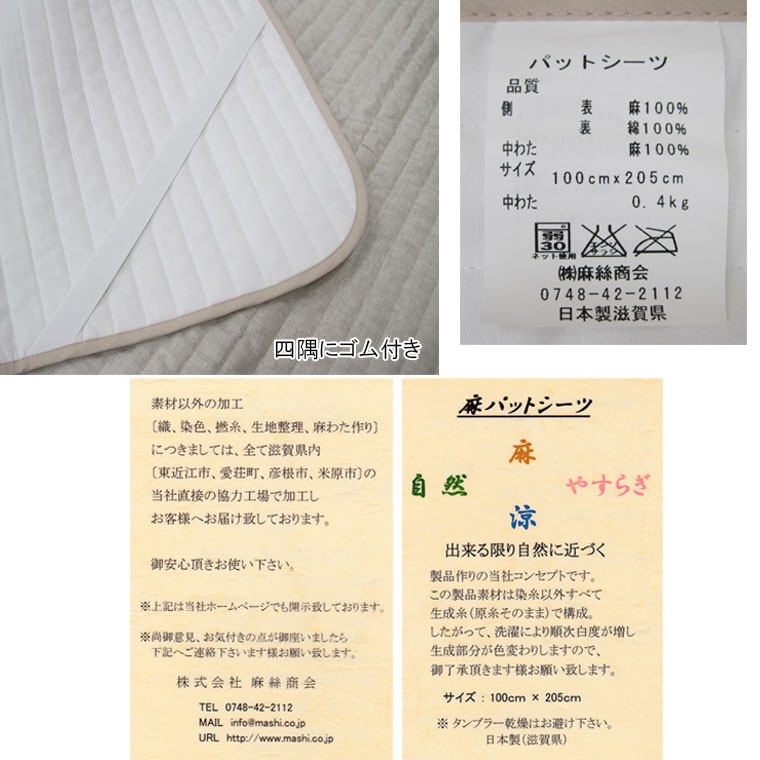 四隅にゴム付き
パットシーツ
品質
側 表 麻100%
裏 綿100%
中わた 麻100%
サイズ 100cm×205cm
中わた 0.4kg
弱
30
ネット使用
エンソ
サラシ
㈱麻絲商会
0748-42-2112
日本製滋賀県
素材以外の加工
〔織、染色、撚糸、生地整理、麻わた作り〕
につきましては、全て滋賀県内
〔東近江市、愛荘町、彦根市、米原市〕の
当社直接の協力工場で加工し
お客様へお届け致しております。
御安心頂きお使い下さい。
※上記は当社ホームページでも開示致しております。
※尚御意見、お気付きの点が御座いましたら
下記へご連絡下さいます様お願い致します。
株式会社 麻絲商会
TEL 0748-42-2112
MAIL info@mashi.co.jp
URL http://www.mashi.co.jp
麻パットシーツ
麻
自然 やすらぎ
涼
出来る限り自然に近づく
製品作りの当社コンセプトです。
この製品素材は染糸以外すべて
生成糸(原糸そのまま)で構成。
したがって、洗濯により順次白度が増し
生成部分が色変わりしますので、
御了承頂きます様お願い致します。
サイズ：100cm × 205cm
※ タンブラー乾燥はお避け下さい。
日本製(滋賀県)